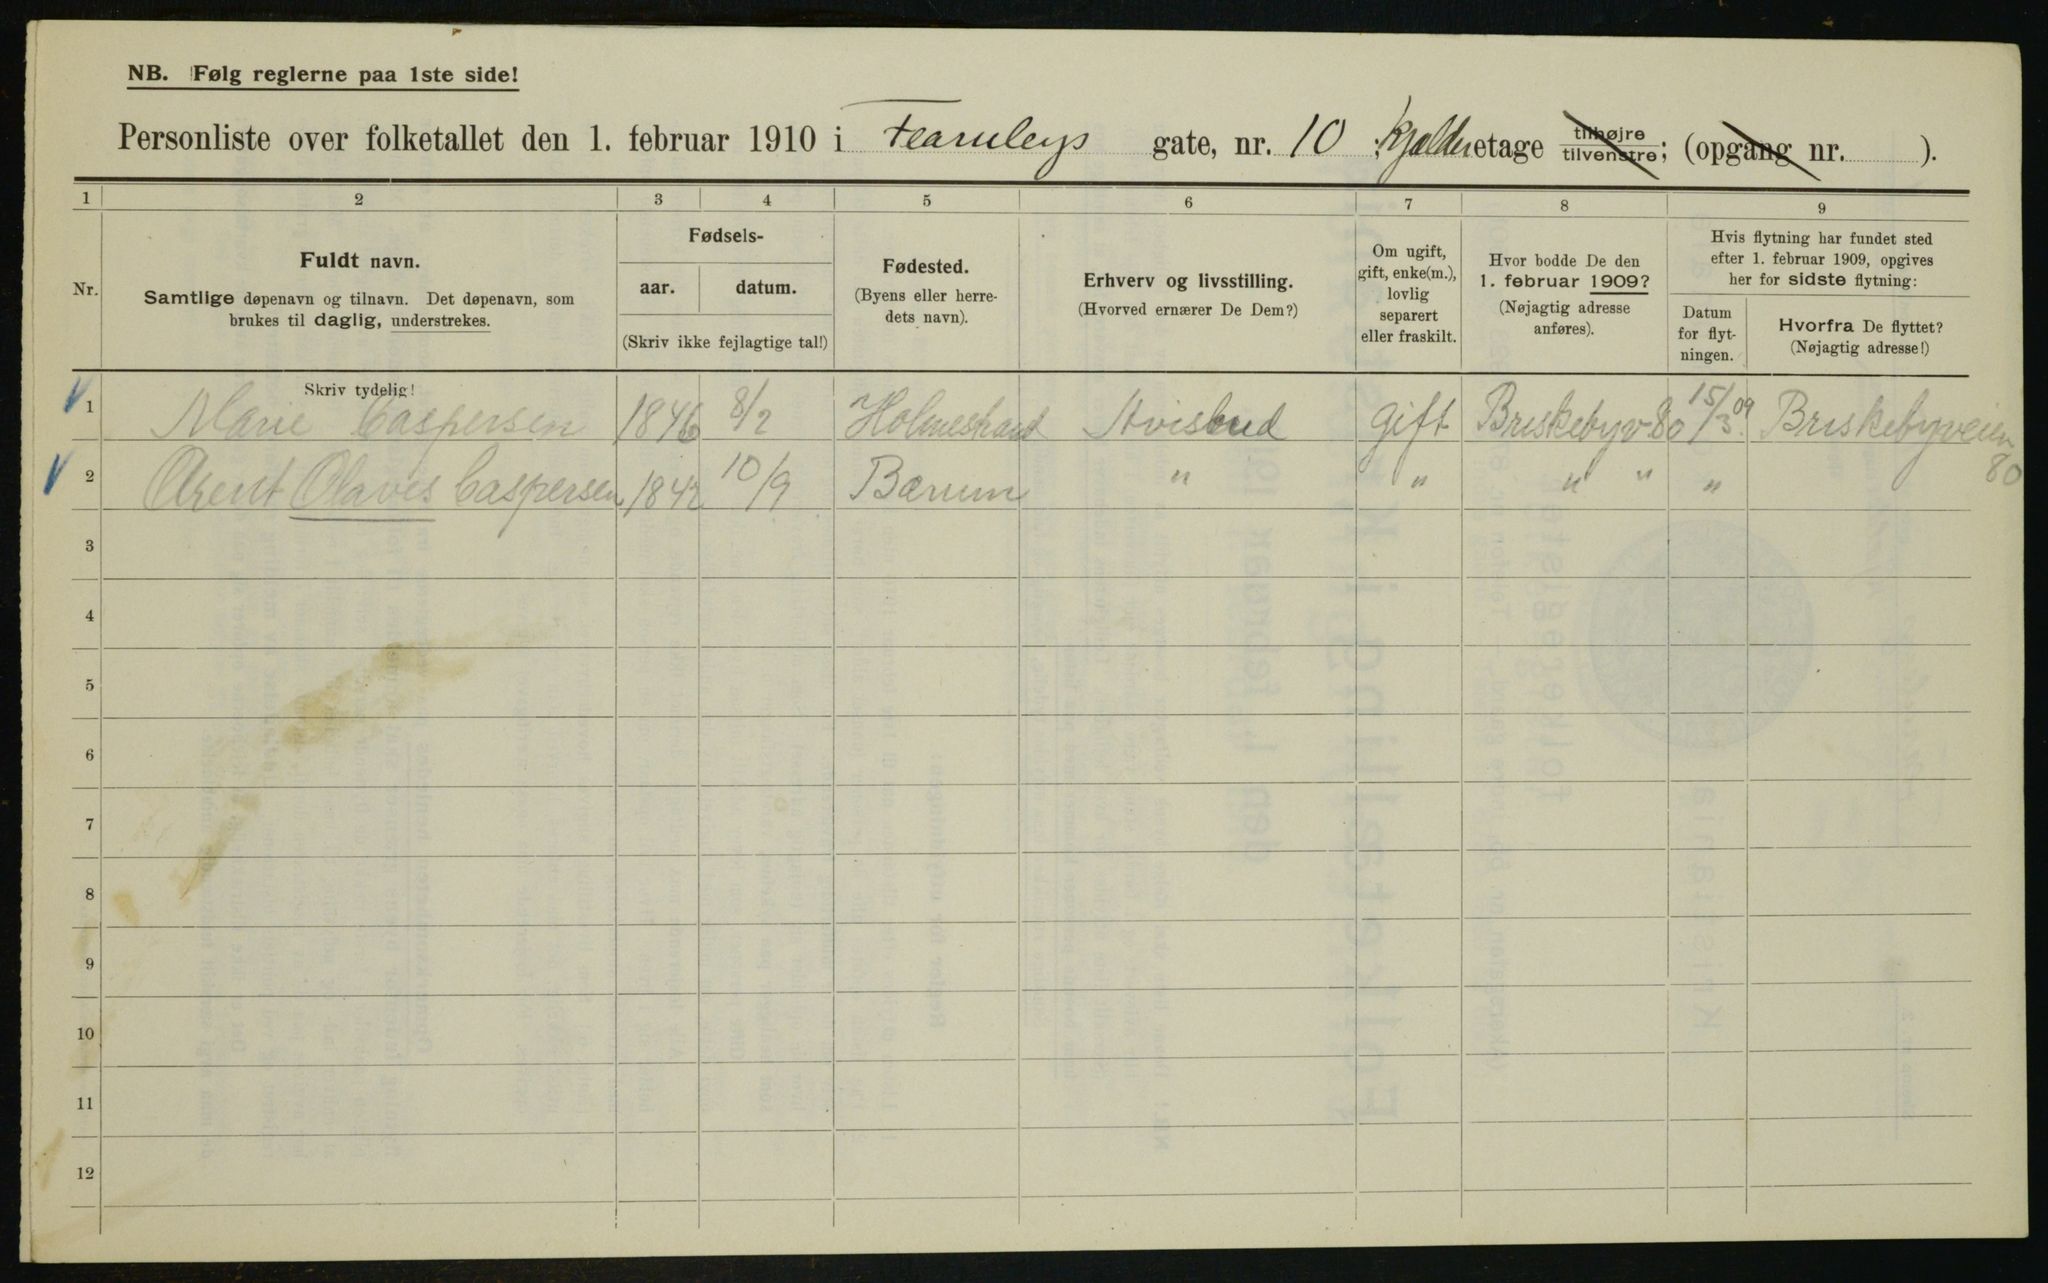 NB. Følg reglerne paa 1ste side!
Personliste over folketallet den 1. februar 1910 i Fearnleys gate, nr. 10 ; Kjælder etage tilhøjre tilvenstre; (opgang nr. ).
1 2 3 4 5 6 7 8 9
Nr.
Fuldt navn.
Samtlige døpenavn og tilnavn. Det døpenavn, som
brukes til daglig, understrekes.
Fødsels-
aar. datum.
(Skriv ikke fejlagtige tal!)
Fødested.
(Byens eller herre-
dets navn).
Erhverv og livsstilling.
(Hvorved ernærer De Dem?)
Om ugift,
gift, enke(m.),
lovlig
separert
eller fraskilt.
Hvor bodde De den
1. februar 1909?
(Nøjagtig adresse
anføres).
Hvis flytning har fundet sted
efter 1. februar 1909, opgives
her for sidste flytning:
Datum
for flyt-
ningen.
Hvorfra De flyttet?
(Nøjagtig adresse!)
Skriv tydelig!
1 Marie Caspersen 1846 8/2 Holmestrand Avisbud Gift Briskebyv 80 15/3 09 Briskebyveien 80
2 Arent Olaves Caspersen 1842 10/9 Bærum " " " " "
3
4
5
6
7
8
9
10
11
12